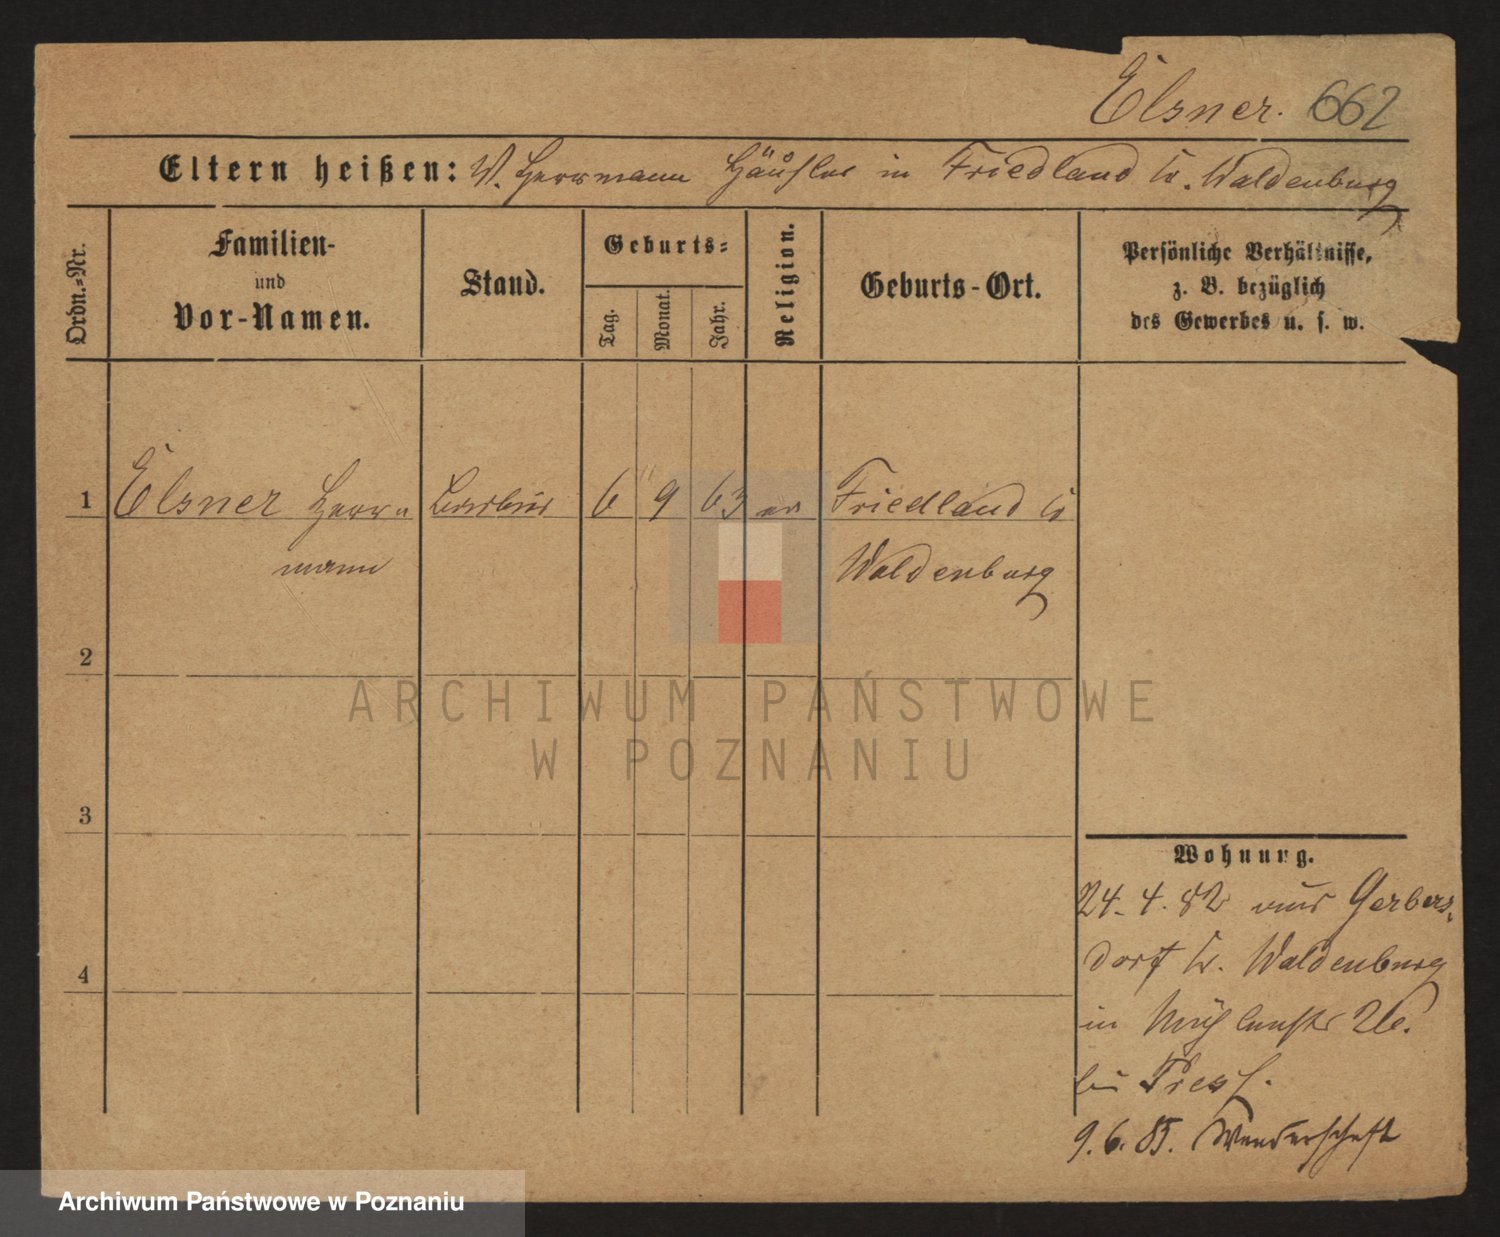 Elsner. 662
Eltern heißen: V. Herrmann Häusler in Friedland Kr. Waldenburg
Ordn.=Nr.
Familien-
und
Vor-Namen.
Stand.
Geburts=
Tag.
Monat.
Jahr.
Religion.
Geburts-Ort.
Persönliche Verhältnisse,
z. B. bezüglich
des Gewerbes u. s. w.
1 Elsner Herr= 6 9 63 ev Friedland Kr
mann Waldenburg
2
3
4
Wohnung.
24. 4. 82 aus Gerbers=
dorf Kr. Waldenburg
in Mühlenstr 26.
bei
9. 6. 85. Wanderschaft
ARCHIWUM PAŃSTWOWE
W POZNANIU
Archiwum Państwowe w Poznaniu